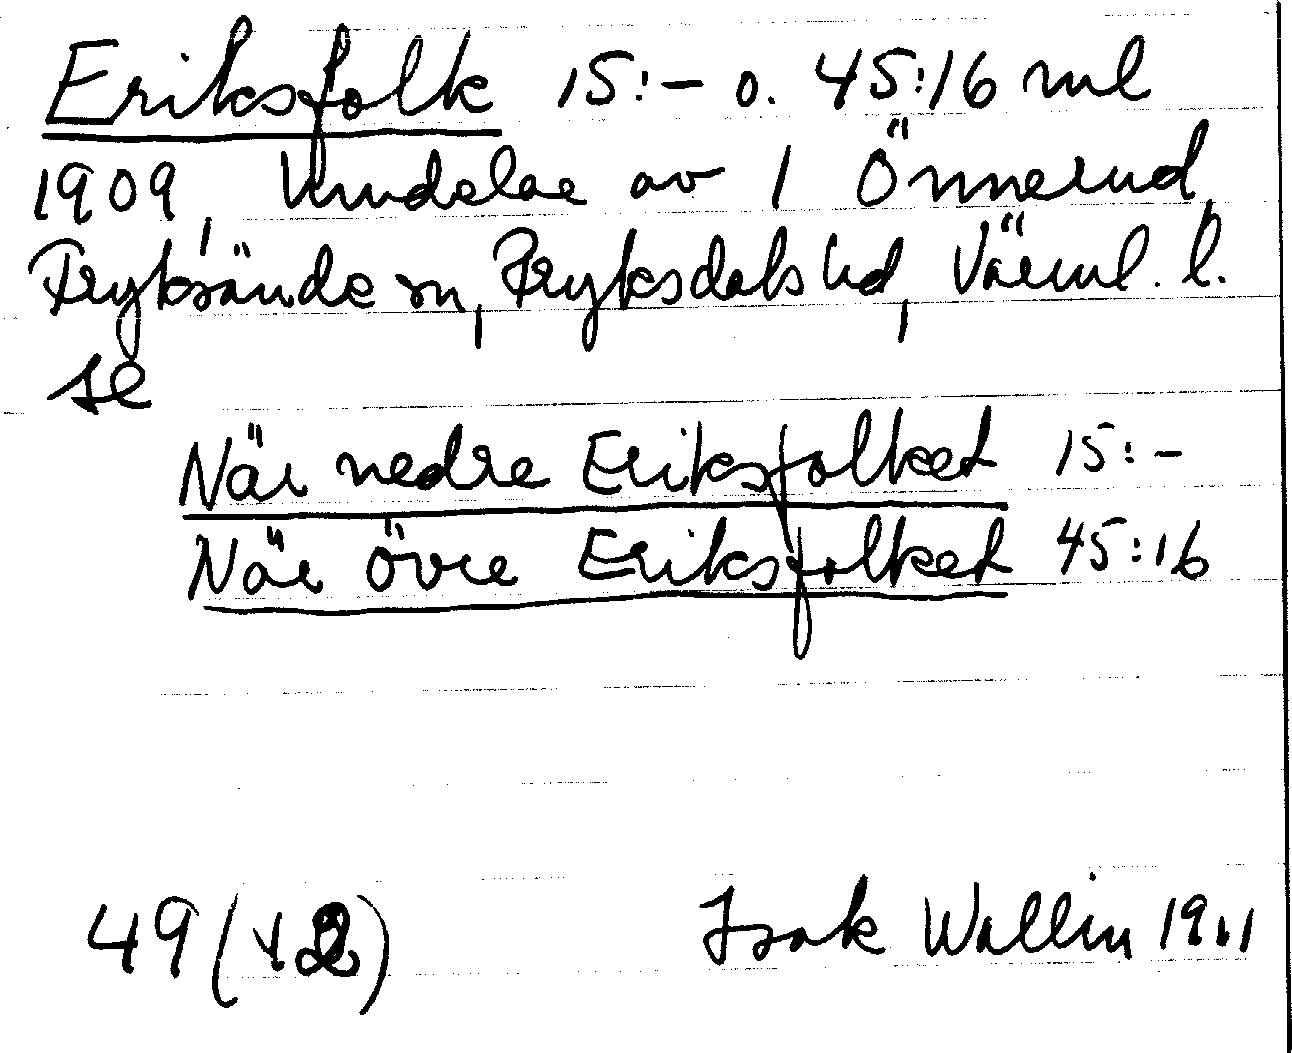 Eriksfolk 15:- o. 45:16 ml
1909, Urudelar av 1 Önnerud
Fryksände sn, Fryksdals hd, Värml. l.
se
När nedre Eriksfolket 15:-
När övre Eriksfolket 45:16
49 (12)
Isak Wallin 1911